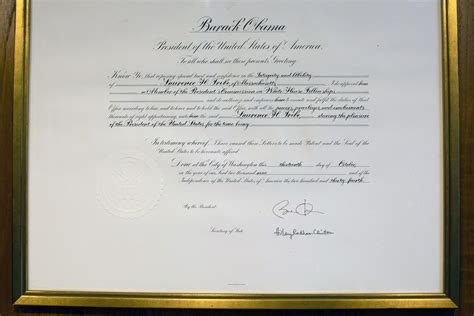 Barack Obama
President of the United States of America.
To all who shall see these presents, Greeting:
Know Ye, that reposing special trust and confidence in the Integrity and Ability
of Laurence H. Tribe, of Massachusetts, I do appoint him
a Member of the President's Commission on White House Fellowships
and do authorize and empower him to execute and fulfil the duties of that
Office according to law, and to have and to hold the said Office, with all the powers, privileges and emoluments
thereunto of right appertaining, unto him the said Laurence H. Tribe, during the pleasure
of the President of the United States for the time being.
In testimony whereof, I have caused these Letters to be made Patent and the Seal of the
United States to be hereunto affixed.
Done at the City of Washington this day of October
in the year of our Lord two thousand nine and of the
Independence of the United States of America the two hundred and thirty-fourth.
By the President:
Secretary of State.
Hillary Rodham Clinton